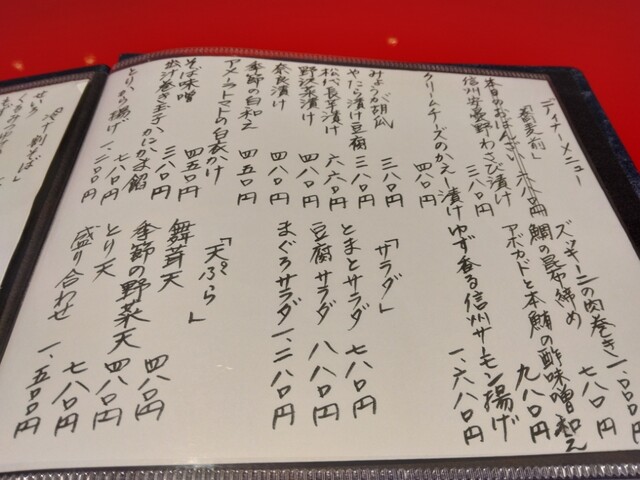 ディナーメニュー
「蕎麦前」
本日のおばんざい 六八〇円
信州安曇野わさび漬け 三八〇円
クリームチーズのかえし漬け 四八〇円
みょうが胡瓜 三八〇円
やたら漬け豆腐 三八〇円
松代長芋漬け 六六〇円
野沢菜漬け 四八〇円
奈良漬け 四八〇円
季節の白和え 四五〇円
アメーラトマトの白衣かけ
そば味噌 四五〇円
出汁巻き玉子かにかま餡
とりから揚げ 七八〇円
ズッキーニの肉巻き 一、〇〇〇円
鯛の昆布締め 七八〇円
アボカドと本鮪の酢味噌和え 九八〇円
ゆず香る信州サーモン揚げ 一、六八〇円
「サラダ」
とまとサラダ 七八〇円
豆腐サラダ 八八〇円
まぐろサラダ 一、二八〇円
「天ぷら」
舞茸天 四八〇円
季節の野菜天 四八〇円
とり天 七八〇円
盛り合わせ 一、五〇〇円
せいろ